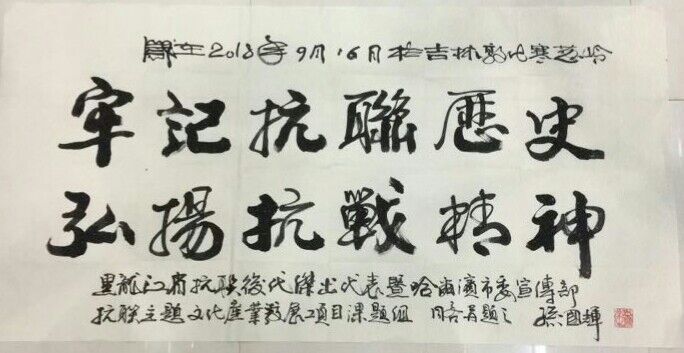 2018年9月16日於吉林敦化寒葱岭
牢記抗聯歷史
弘揚抗戰精神
黑龍江省抗联後代傑出代表暨哈尔濱市委宣傳部
抗联主題文化産業發展項目課題組 題 孫國輝